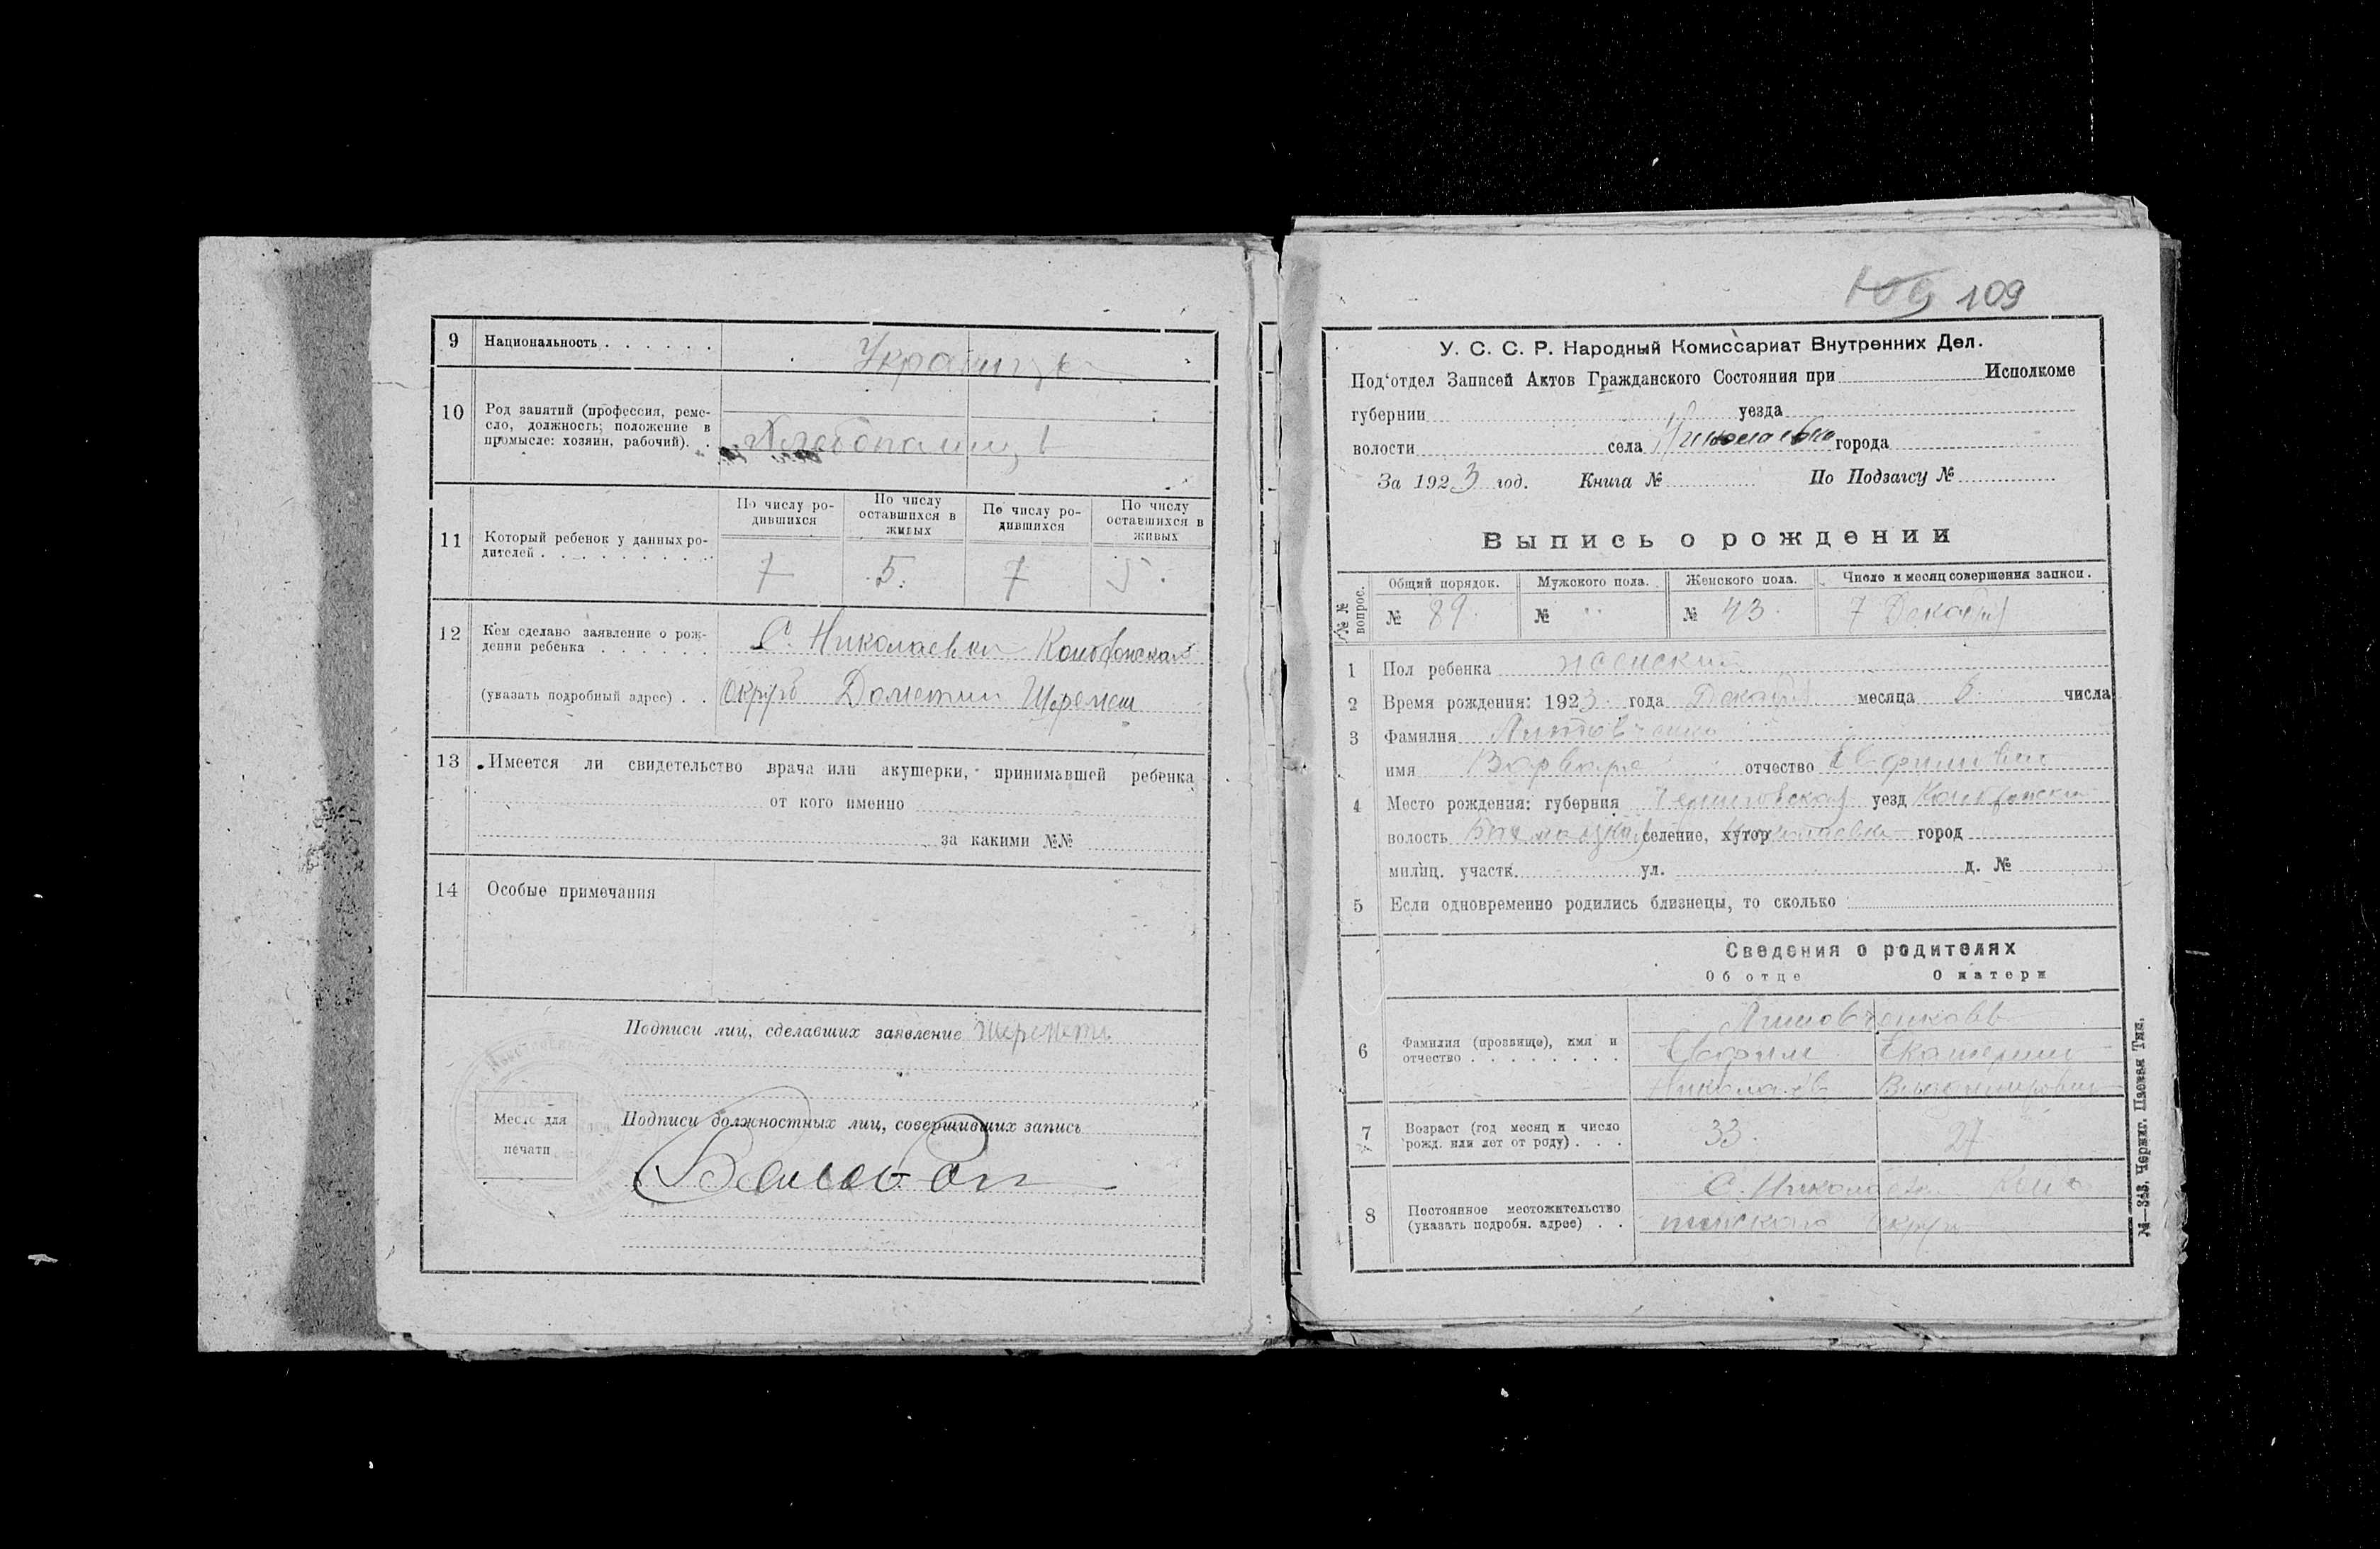 9 Национальность . . . . . . Украинцы
10 Род занятий (профессия, реме-
сло, должность; положение в
промысле: хозяин, рабочий). .
Хлебопашцы
11 Который ребенок у данных ро-
дителей . . . . . . . . . .
По числу ро-
дившихся
По числу
оставшихся в
живых
По числу ро-
дившихся
По числу
оставшихся в
живых
7 5. 7 5.
12 Кем сделано заявление о рож-
дении ребенка . . . . . . С. Николаевки Конотопская
(указать подробный адрес) . . округ
13 Имеется ли свидетельство врача или акушерки, принимавшей ребенка
от кого именно
за какими №№
14 Особые примечания
Подписи лиц, сделавших заявление
Место для
печати
Подписи должностных лиц, совершивших запись
109 109
У. С. С. Р. Народный Комиссариат Внутренних Дел.
Под'отдел Записей Актов Гражданского Состояния при Исполкоме
губернии уезда
волости села Николаевка города
За 1923 год. Книга № По Подзагсу №
Выпись о рождении
№ № вопрос.
Общий порядок. Мужского пола. Женского пола. Число и месяц совершения записи.
№ 89. № " № 43. 7 Декабря
1 Пол ребенка женский
2 Время рождения: 1923 года Декабря месяца 6 числа
3 Фамилия Литовченко
имя Варвара отчество
4 Место рождения: губерния Черниговская уезд Конотопский
волость Бахмацкая селение, хутор Николаевка город
милиц. участк. ул. д. №
5 Если одновременно родились близнецы, то сколько
Сведения о родителях
Об отце О матери
6 Фамилия (прозвище), имя и
отчество . . . . . . . .
Екатерина
Николаев Владимировна
7 Возраст (год месяц и число
рожд. или лет от роду) . . .
33. 27
8 Постоянное местожительство
(указать подробн. адрес) . .
С. Николаевка Коно
топского округа
№—343, Черниг. Цловая Тип.